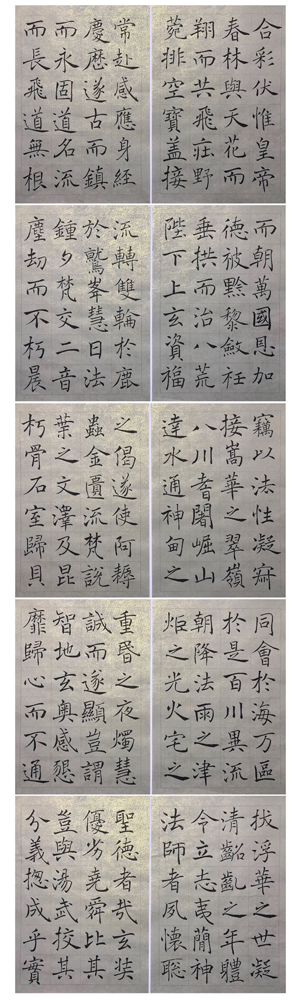 而長飛道無根
而永固道名流
慶歷遂古而鎮
常赴感應身經
塵劫而不朽晨
鍾夕梵交二音
於鷲峯慧日法
流轉雙輪於鹿
菀排空寶盖接
翔而共飛莊野
春林與天花而
合彩伏惟皇帝
陛下上玄資福
垂拱而治八荒
德被黔黎斂衽
而朝萬國恩加
朽骨石室歸貝
葉之文澤及昆
蟲金匱流梵說
之偈遂使阿耨
達水通神甸之
八川耆闍崛山
接嵩華之翠嶺
竊以法性凝寂
靡歸心而不通
智地玄奧感懇
誠而遂顯豈謂
重昬之夜燭慧
炬之光火宅之
朝降法雨之津
於是百川異流
同會於海万區
分義揔成乎實
豈與湯武挍其
優劣堯舜比其
聖德者哉玄奘
法師者夙懷聡
令立志夷簡神
清齠齔之年體
拔浮華之世凝